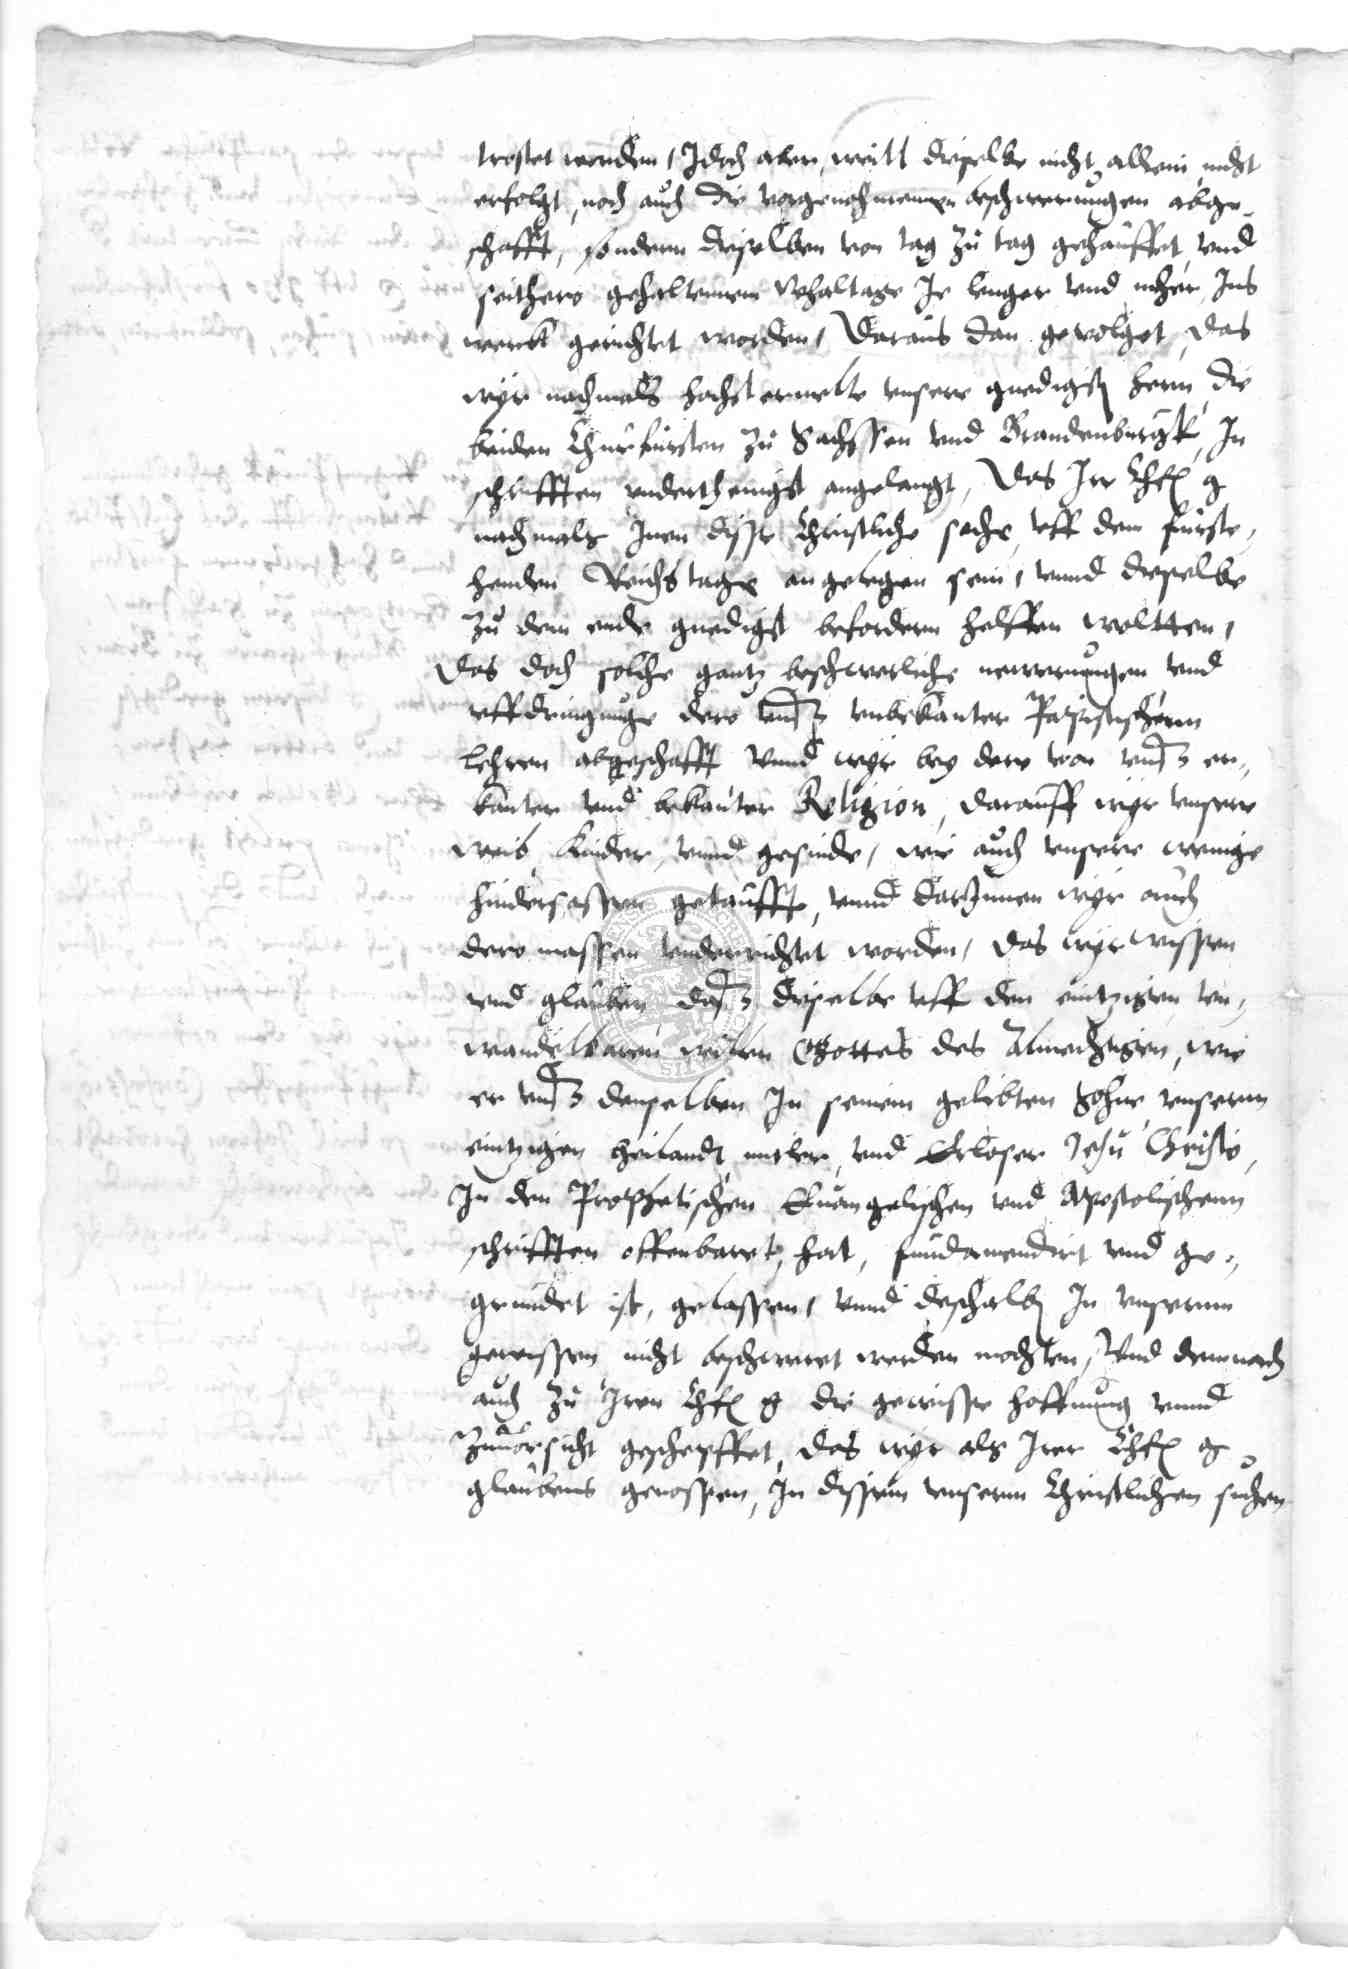 trostet worden, Jdoch aber, weill dieselbe nicht allein nicht
erfolgt, noch auch die vorgenohmenen beschwerungen abge-
schafft, sondern dieselben von tag zu tag gehauffet vnd
seithero gehaltenem Je lenger vnd meher, Ins
werck gerichtet worden, Daraus dan gevolget, das
wyr nachmals hochsternelte vnsere gnedigst herrn, die
beiden Churfursten zu Sachssen vnd Brandenburgk, In
schrifften vnderthenigst angelangt, Das Ire Chf g
nachmals Inen disse Christliche sache, vff dem furste-
henden Reichstage angelegen sein, vnnd dieselbe
zu dem ende gnedigst befordern helffen woltten,
das doch solche gantz beschwerliche newerungen vnd
vffdringunge dero vnß vnbekanter Papistischenn
lehren abgeschafft vnnd wyr bey dero von vnß er-
kanter vnd bekanter Religion, darauff wyr vnsere
weib kinder, vnnd gesinde, wie auch vnsere wenige
hindersassen getaufft, vnnd darInnen wyr auch
dero massen vnderrichtet worden, das wyr wissen
vnd glauben daß dieselbe vff den eintzigen vn-
wandelbaren willen Gottes des Almechtigen, wie
er vnß denselben In seinem gelibten Sohne vnserm
eintzigen heilandt mitler, vnd Erloser Jesu Christo,
In den Prophetischen Euangelischen vnd Apostolischenn
schrifften offenbaret hat, fundamendirt vnd ge-
grundet ist, gelassen, vnnd deshalb In vnserm
gewissen nicht beschweret werden mochten, Vnd demnach
auch zu Iren Chf g die gewisse hoffnung vnnd
Zuuorsicht geschepffet, das wyr als Irer Chf g
glaubens genossen, In dissem vnserm Christlichen suchen